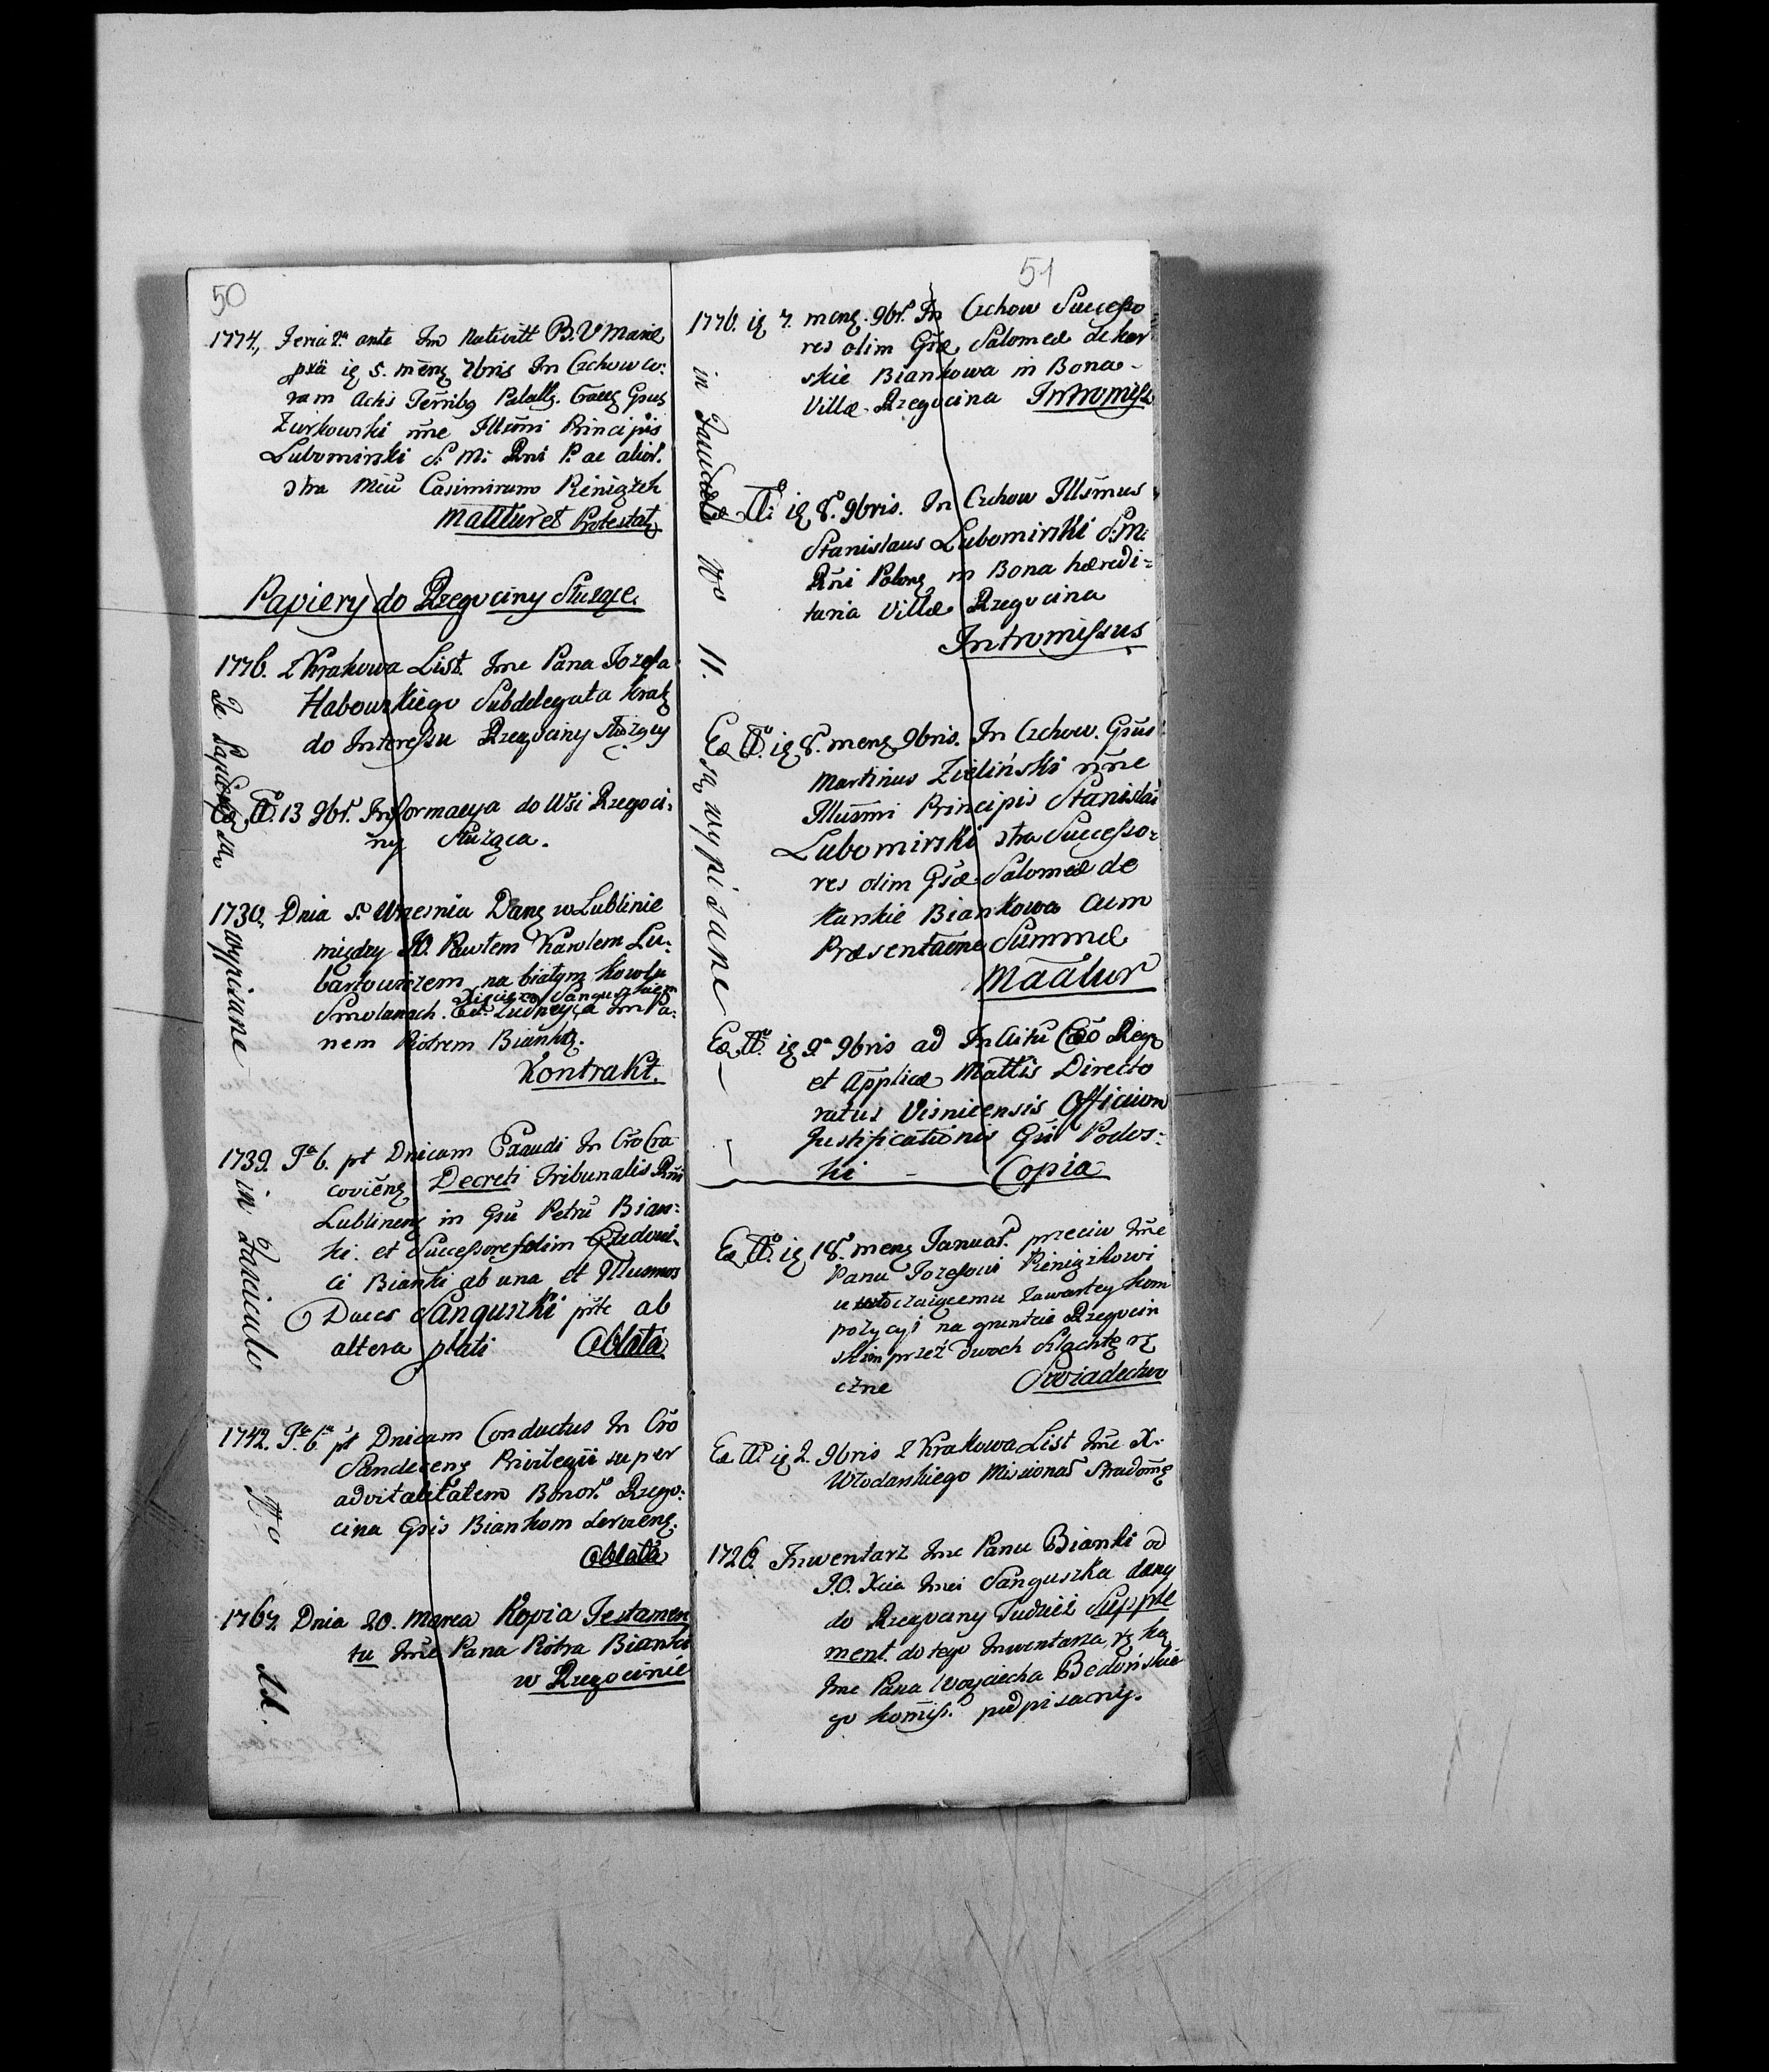 50
1774, Feria 2ª ante Fm Nativitt B. V Mariæ
pxã ię 5. menz 7bris In Czchow co:
ram Actis Terribg Palatt. Cracę Gnus
Żurkowski nñe Illustri Principis
Lubomirski S. M: Rni P. ac alior.
ctra Mcũ Casimirum Reniążek
Manltur et Protestatz
Papiery do Rzegociny Służące.
1776. Z Krakowa List. Jmc Pana Jozefa
Habowskiego Subdelegata Krak
do Interessu Rzegociny służący
Eo Ao. 13 9br. Informacya do Wsi Rzegoci:
ny Służąca.
1730, Dnia 5. Wrzesnia Dany w Lublinie
między JO. Pawłem Karolem Lu:
bartowiczem na białym Kowlu
Xiążęcm Sanguszkiem
Smolanach. a Jm Pa:
nem Piotrem Bianki.
Kontrakt.
1739. Fª 6. pt Dnicam Exaudi In Cro Cra
coviens Decreti Tribunalis Rni
Lublinens in Gsũ Petrũ Bian:
ki. et Successores olim Ludovi:
ci Bianki ab una et Illusmos
Duces Sanguszki prte ab
altera plati Oblata
1742. Fª 6ª pt Dnicam Conductus In Cro
Sandecens Privilegii super
advitalitatem Bonor. Rzego:
cina Gsis Biankom serviens.
Oblata
1767. Dnia 20. Marca Kopia Testamen
tu Jmc Pana Piotra Bianki
w Rzegocinie
Te Papiery są
wypisane
in Fasciculo
No
11.
51
1776. ię 7. menz. 9br. In Czchow Successo
res olim Gsæ Salomeæ de Kar
skie Biankowa in Bona
Villæ Rzegocina Intromissi
Eo Ao: ię 8. 9bris. In Czchow Illsmus
Stanislaus Lubomirski S. M.
Rñi Polonę in Bona hæredi=
taria Villæ Rzegocina
Intromissus
Eo Ao. ię 8. menz 9bris. In Czchow. Gsus
Martinus Zieliński nñe
Illusmi Principis Stanislai
Lubomirski ctra Successo=
res olim Gsæ Salomeæ de
Karskie Biankowa cum
Præsentaõne Summæ
Maãtur
Eo Ao. ię 9ª 9bris ad Inclitũ Cæs Reg
et Applicæ Mattis Directo
ratus Visnicensis Officium
Justificationis Gsi Podos:
ki – Copia
Eo Ao. ię 18. menz Januar. przeciw Jmc
Panu Jozefowi Reniążkowi
zawartey kom
pozycyi na gruncie Rzegociń
skim przez dwoch Szlachtę rę
czne Swiadectwo
Eo Ao ię 2. 9bris z Krakowa List Jmc X.
Włodarskiego Missionar Stradomę
1726. Inwentarz Jmc Panu Bianki od
J.O. Xcia Jmci Sanguszka dany
do Rzegociny Tudzież Supple
ment. do tego Inwentarza, rę ką
Jmc Pana Woyciecha Bedońskie
go komiss. podpisany.
in Fasciculo No 11.
są wypisane